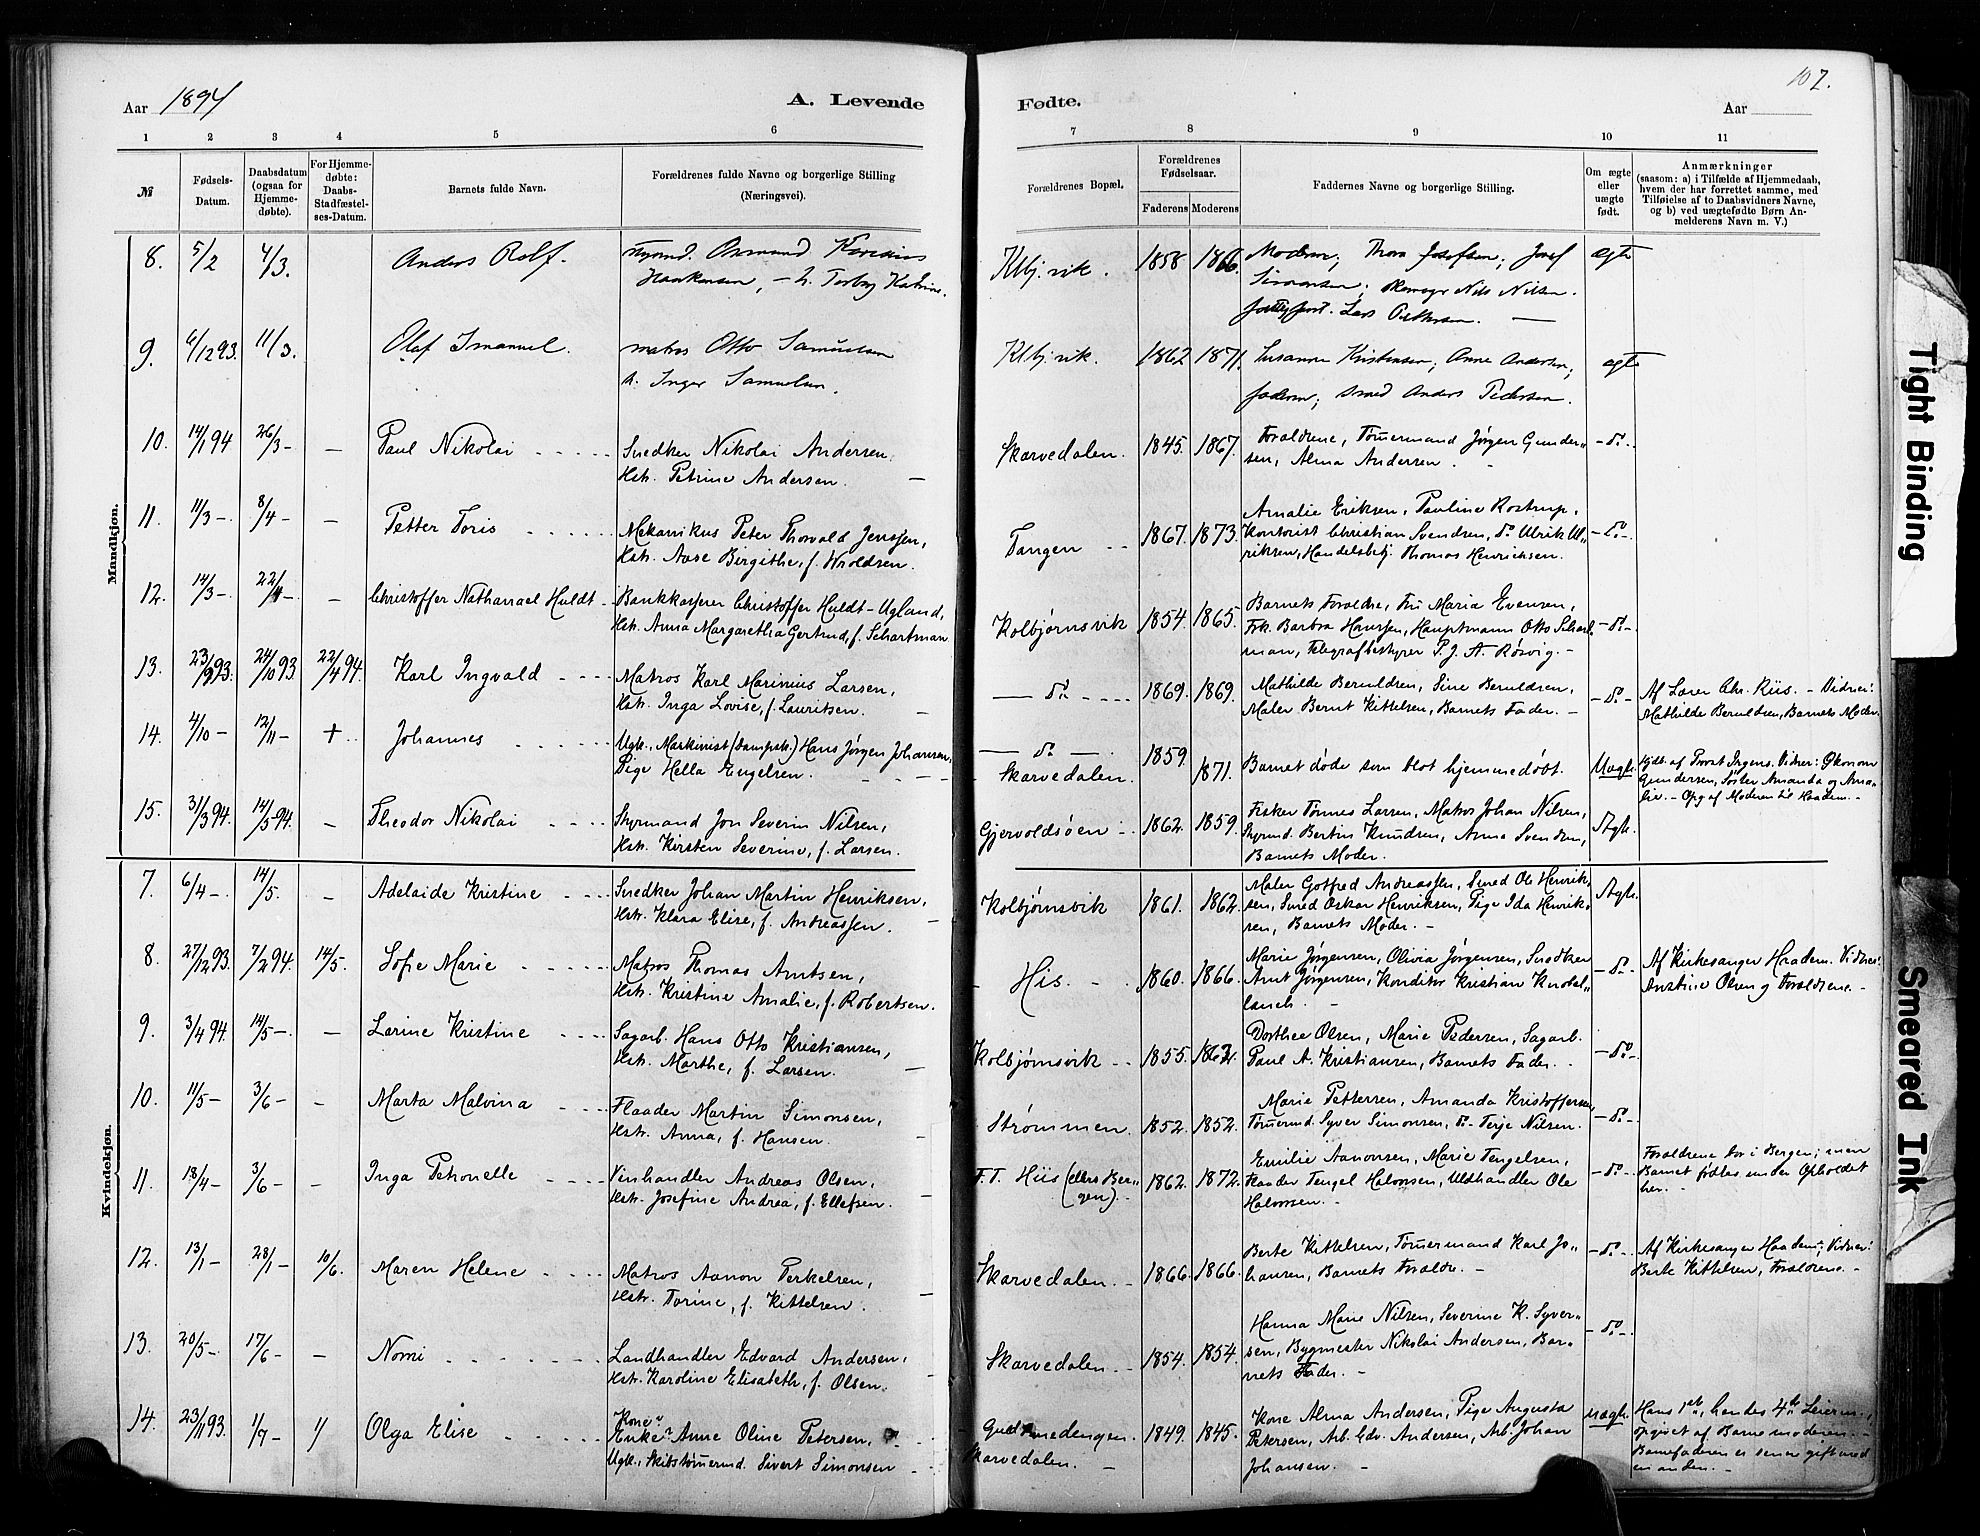 Aar 1894
A. Levende
Fødte.
Aar
107.
1 2 3 4 5 6 7 8 9 10 11
№
Fødsels-
Datum.
Daabsdatum
(ogsaa for
Hjemme-
døbte).
For Hjemme-
døbte:
Daabs-
Stadfæstel-
ses-Datum.
Barnets fulde Navn.
Forældrenes fulde Navne og borgerlige Stilling
(Næringsvei).
Forældrenes Bopæl.
Forældrenes
Fødselsaar.
Faderens Moderens
Faddernes Navne og borgerlige Stilling.
Om ægte
eller
uægte
født.
Anmærkninger
(saasom: a) i Tilfælde af Hjemmedaab,
hvem der har forrettet samme, med
Tilføielse af to Daabsvidners Navne,
og b) ved uægtefødte Børn An-
melderens Navn m. V.)
Mandkjøn.
8. 5/2 4/3. Anders Rolf.
Haakensen, - h. Torborg Katrine.
Klbj.vik. 1858 1866.
ægte
9. 6/12 93. 11/3. Olaf Imanuel. matros Otto Samuelsen
h. Inger Samuelsen.
Klbj.vik. 1862 1871. Susanne Kristensen; Anne Andersen;
faderen; smed Anders Pedersen.
ægte
10. 14/1 94 26/3 - - Paul Nikolai Snedker Nikolai Andersen.
Hstr. Petrine Andersen. -
Skarvedalen. 1845. 1867. Forældrene, Tømermand Jørgen Gunder-
sen, Alma Andersen. - do -
11. 11/3 - 8/4 - - Petter Toris Mekanikus Peter Thorvald Jenssen,
Hstr. Aase Birgithe, f. Wroldsen.
Tangen 1867. 1873. Amalie Eriksen, Pauline Rostrup,
Kontorist Christian Svendsen, do Ulrik Ul-
riksen, Handelsbetj. Thomas Henriksen. - do -
12. 14/3 - 22/4 - - Christoffer Nathanael Huldt Bankkasserer Christoffer Huldt-Ugland,
Hstr. Anna Margaretha Gertrud, f. Schartman
Kolbjørnsvik 1854. 1865. Barnets Forældre, Fru Maria Evensen,
Frk. Barbra Hanssen, Hauptmann Otto Schart-
man, Telegrafbestyrer P. J. A. Røsvig. - - do -
13. 23/9 93. 24/10 93 22/4 94. Karl Ingvald Matros Karl Marinius Larsen,
Hstr. Inga Lovise, f. Lauritsen. -
- do - 1869. 1869. Mathilde Beruldsen, Sine Beruldsen,
Maler Bernt Kittelsen, Barnets Fader. - - do -
Af Lærer Chr. Riis. - Vidner:
Mathilde Beruldsen, Barnets Moder.
14. 4/10 - 12/11 - + Johannes Ugk., Maskinist (Dampsk.) Hans Jørgen Johansen,
Pige Hella Engelsen.
- do -
Skarvedalen. 1859. 1871. Barnet døde som blot hjemmedøbt. Uægte.
Hjdt. af Provst Irgens. Vidner: Økonom
Gundersen, Søster Amanda og Ama-
lie. - Opg. af Moderen til Haadem. -
15. 31/3 94. 14/5 94. - Theodor Nikolai Styrmand Jon Severin Nilsen,
Hstr. Kirsten Severine, f. Larsen.
Gjervoldsøen 1862. 1859. Fisker Tønnes Larsen, Matros Johan Nilsen,
Styrmd. Bertin Knudsen, Anna Svendsen,
Barnets Moder. Ægte.
Kvindekjøn.
7. 6/4 - 14/5. - Adelaide Kristine Snedker Johan Martin Henriksen,
Hstr. Klara Elise, f. Andreassen. -
Kolbjørnsvik 1861. 1862. Maler Gotfred Andreassen, Smed Ole Henrik-
sen, Smed Oskar Henriksen, Pige Ida Henrik-
sen, Barnets Moder. - Ægte.
8. 27/12 93. 7/2 94. 14/5. Sofie Marie Matros Thomas Arntsen,
Hstr. Kristine Amalie, f. Robertsen.
His. 1860. 1866. Marie Jørgensen, Olivia Jørgensen, Snedker
Arnt Jørgensen, Konditor Kristian Knobel-
lauch. - do -
Af Kirkesanger Haadem. Vidner:
Anstine Olsen og Forældrene. -
9. 3/4 94. 14/5 -. - Larine Kristine Sagarb. Hans Otto Kristiansen,
Hstr. Marthe, f. Larsen. -
Kolbjørnsvik 1855. 1862. Dorthee Olsen, Marie Pedersen, Sagarb.
Paul A. Kristiansen, Barnets Fader. - do -
10. 11/5 - 3/6 - - Marta Malvina Flaader Martin Simonsen,
Hstr. Anna, f. Hansen.
Strømmen. 1852. 1852. Marie Pettersen, Amanda Kristoffersen,
Tømermd. Syver Simonsen, do - Terje Nilsen. - do -
11. 18/4 - 3/6 - - Inga Petronelle Vinhandler Andreas Olsen,
Hstr. Josefine Andrea, f. Ellefsen.
F.T. Hiis (ellers Ber-
gen). 1862. 1872. Emilie Aanonsen, Marie Tengelsen,
Flaader Tengel Halvorsen, Uldhandler Ole
Halvorsen. - - do -
Forældrene bor i Bergen; men
Barnet fødtes under Opholdet
her.
12. 13/1 - 28/1 - 10/6. Maren Helene Matros Aanon Terkelsen,
Hstr. Torine, f. Kittelsen.
Skarvedalen. 1866. 1866. Berte Kittelsen, Tømermand Karl Jo-
hansen, Barnets Forældre. - - do -
Af Kirkesanger Haadem; Vidner:
Berte Kittelsen, Forældrene. -
13. 20/5 - 17/6 - - Nomi Landhandler Edvard Andersen,
Hstr. Karoline Elisabeth, f. Olsen.
Skarvedalen. 1854. 1854. Hanna Marie Nilsen, Severine K. Syver-
sen, Bygmester Nikolai Andersen, Bar-
nets Fader. - - do -
14. 23/11 93. 1/7 - Olga Elise Kone
Enke Anne Oline Petersen,
Ugk., Skibstømermd. Sivert Simonsen
Gudmedengen
Skarvedalen. - 1849. 1845. Kone Alma Andersen, Pige Augusta
Petersen, Arb. Edv. Andersen, Arb. Johan
Johansen. - uægte.
Hans 1ste, hendes 4de Leierm.,
opgivet af Barnemoderen. -
Barnefaderen er senere gift med
en anden. -
Tight Binding
Smeared Ink